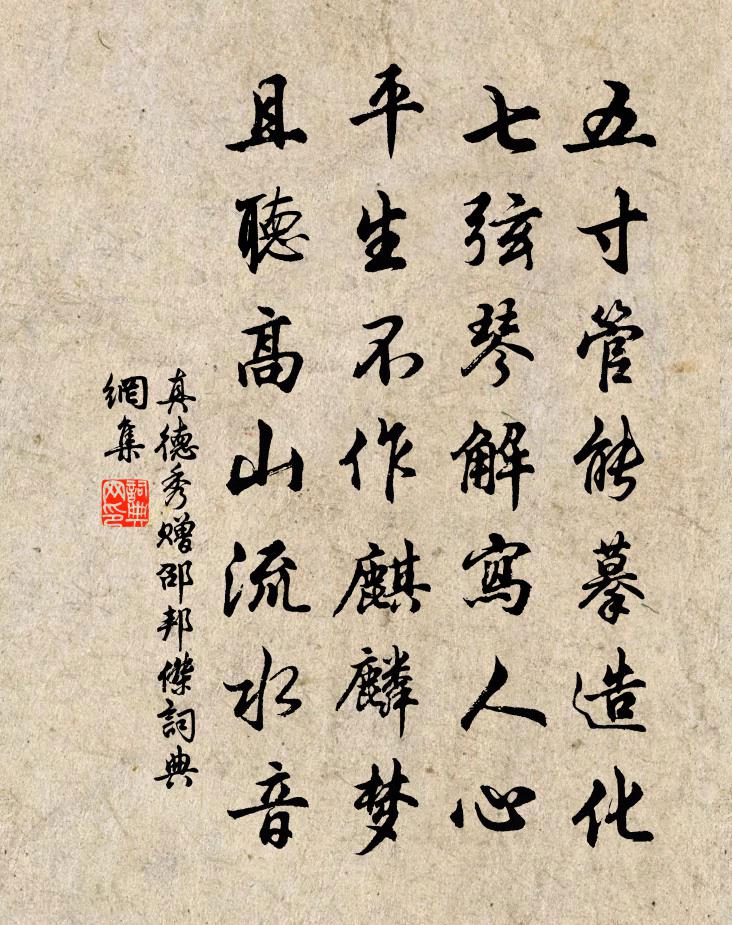 五寸管能摹造化
七弦琴解寫人心
平生不作麒麟梦
且聽高山流水音
真德秀赠邵邦傑詞典
網集
詞典网印